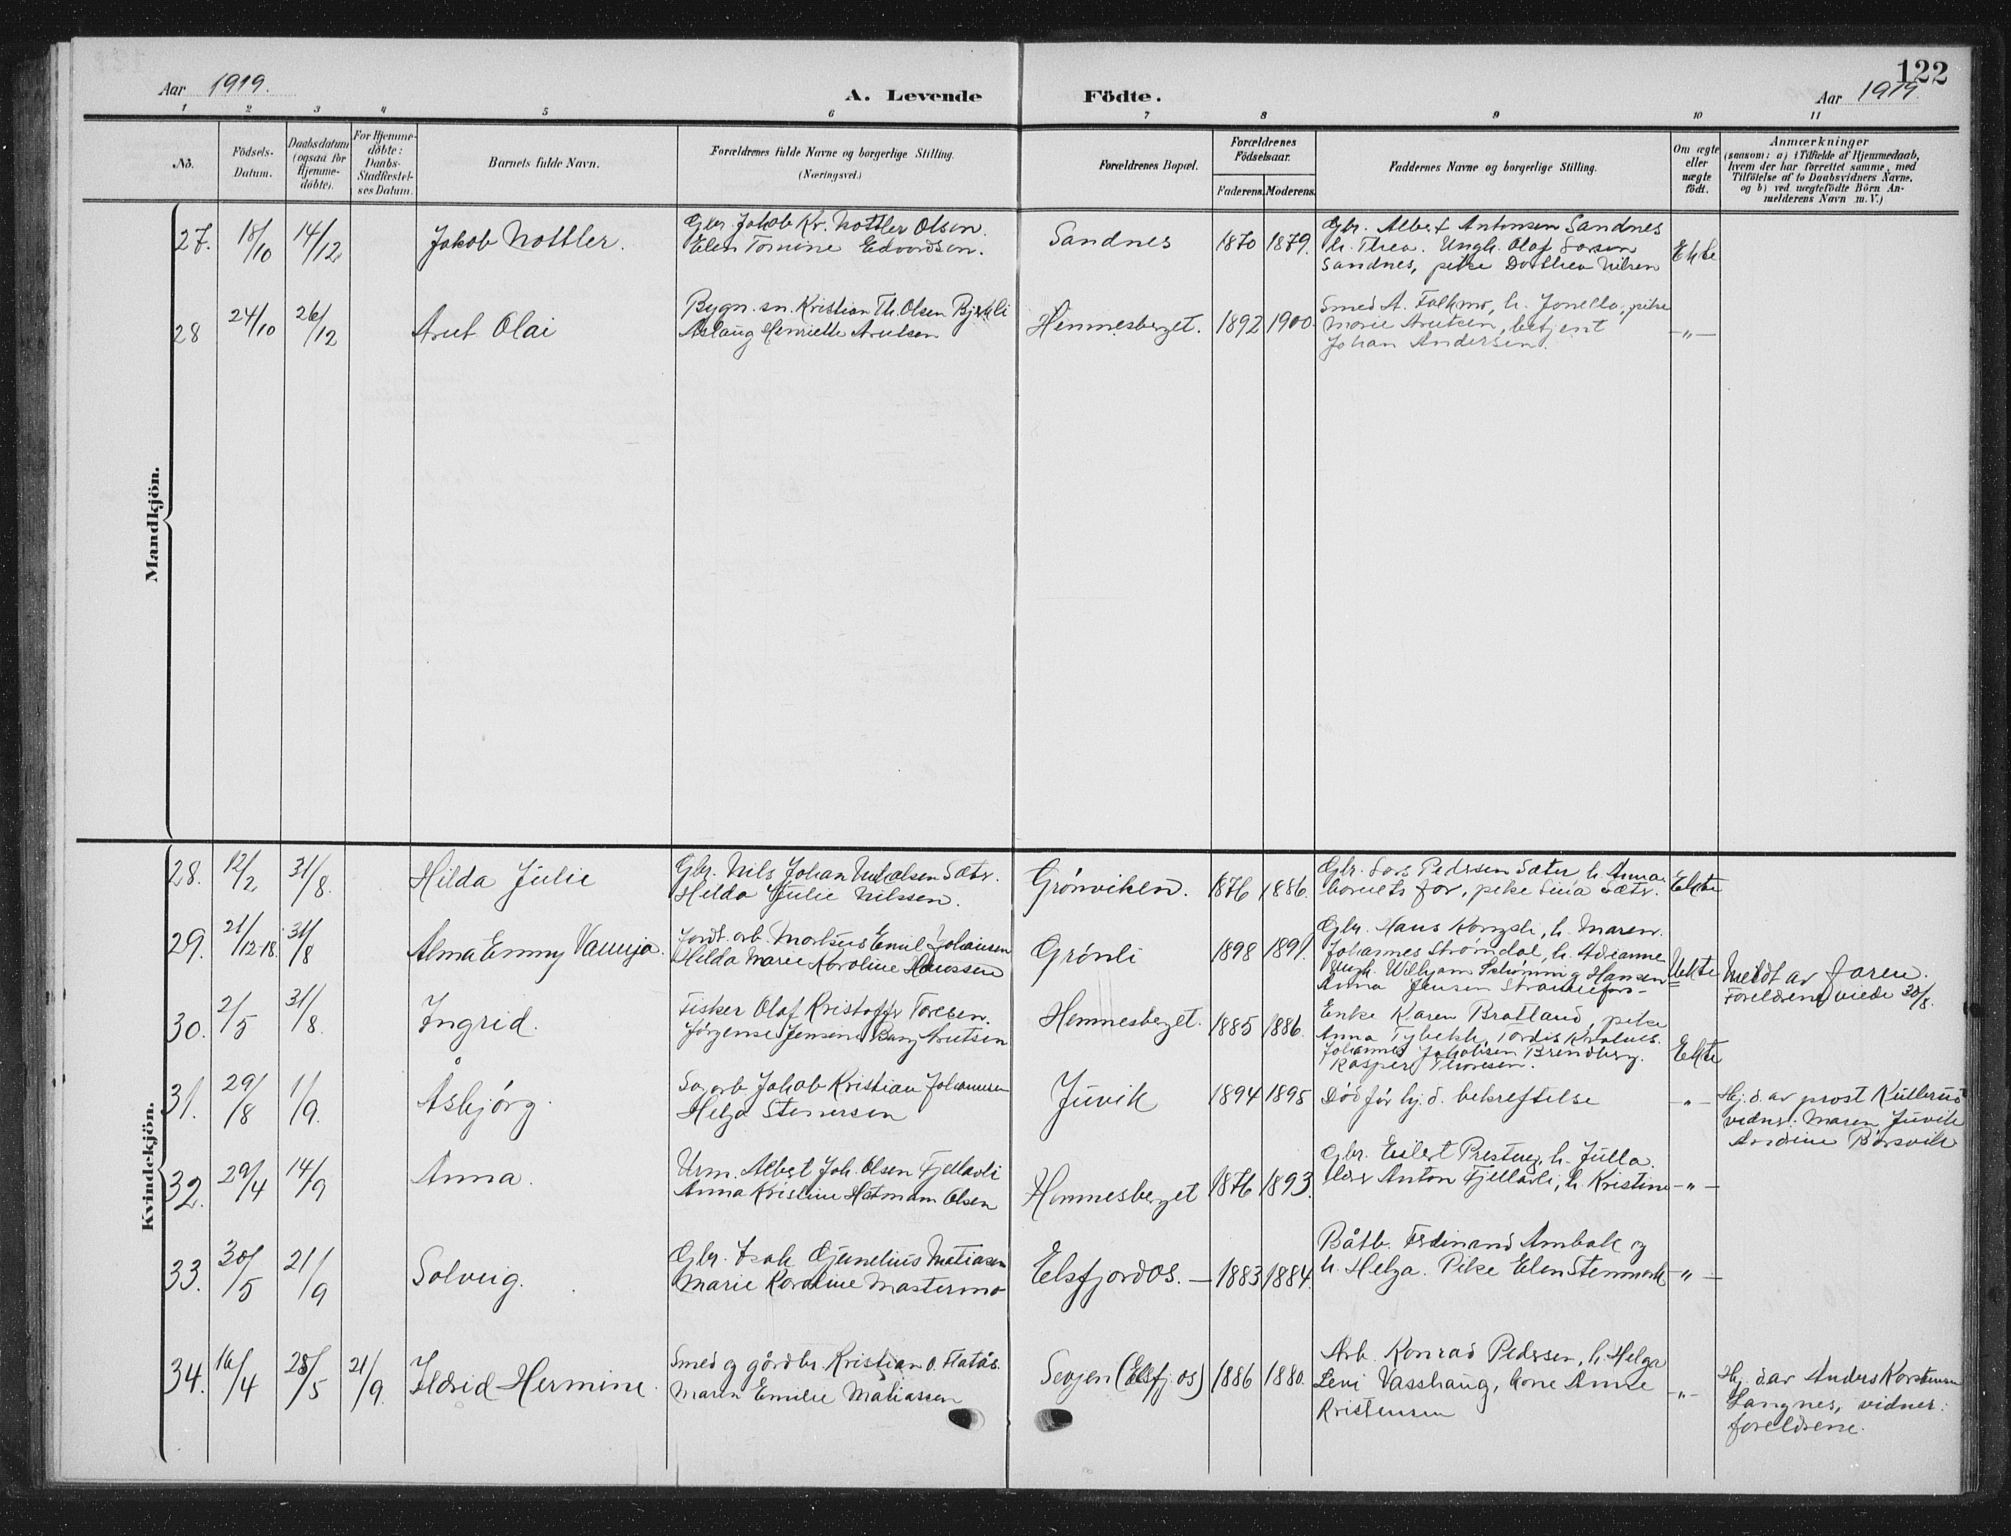 122
Aar 1919.
A. Levende Födte.
Aar 1919
1 2 3 4 5 6 7 8 9 10 11
No.
Födsels-Datum.
Daabsdatum (ogsaa for Hjemme-döbte).
For Hjemme-döbte: Daabs-Stadfæstel-ses Datum.
Barnets fulde Navn.
Forældrenes fulde Navne og borgerlige Stilling.
(Næringsvei.)
Forældrenes Bopæl.
Forældrenes Födselsaar.
Faderens. Moderens.
Faddernes Navne og borgerlige Stilling.
Om ægte eller uægte födt.
Anmærkninger
(saasom: a) i Tilfælde af Hjemmedaab,
hvem der har forrettet samme, med
Tilföielse af to Daabsvidners Navne,
og b) ved uægtefödte Börn An-
melderens Navn m. V.)
Mandkjön.
27. 18/10 14/12 Jakob Nottler. Gbr. Jakob Kr. Nottler Olsen.
Elen Tomine Edvardsen. Sandnes 1870 1879. Gbr. Albert Antonsen Sandnes
h. Thea. Ungk. Olaf Larsen
Sandnes, pike Dorthea Nilsen Ekte
28 24/10 26/12 Arnt Olai Bygn. sn. Kristian Th. Olsen Bjerkli
Aslaug Henriette Arntsen Hemnesberget. 1892 1900. Smed A. Falkmo, h. Jonetta, pike
Marie Arntsen, betjent
Johan Andersen. -"-
Kvindekjön.
28. 12/2 31/8. Hilda Julie Gbr. Nils Johan Nikolaisen Sæter.
Hilda Julie Nilssen. Grønviken. 1876 1886. Gbr. Lars Pedersen Sæter, h. Anna
barnets far, pike Lina Sæter. Ekte
29. 21/12 18. 31/8 Alma Emmy Vaunja. Jordb. arb. Markus Emil Johansen
Hilda Marie Karoline Hanssen Grønli 1898 1891. Gbr. Hans h. Maren.
Johannes Strømdal, h. Adrianne
Ungk. Wilhjam Schjønning Hansen
Anna Jensen Uekte Meldt av faren.
Foreldrene viede 30/8.
30. 2/5 31/8. Ingrid. Fisker Olaf Kristoffer Toresen.
Jørgense Jensine Bang Arntsen Hemnesberget. 1885 1886. Enke Karen Bratland, pike
Anna Tybekk, Tordis
Johannes Jakobsen Brendberg.
Kasper Thoresen. Ekte
31. 29/8 1/9. Åsbjørg. Sagarb Jakob Kristian Johannesen
Helga Stenersen Juvik 1894 1895 Død før hj. d. bekreftelse -"- Hj. d. av prost Kullerud
vidner. Maren Juvik
Andine Børsvik
32. 29/4 14/9 Anna. Urm. Albert Joh. Olsen Fjellavli
Anna Kristine Hatmam Olsen Hemnesberget 1876 1893. Gbr. Eilert Presteng, h. Julla.
Anton Fjellavli, h. Kristine -"-
33. 30/5 21/9 Solveig. Gbr. Isak Cornelius Matiasen
Marie Karoline Mastermo Elsfjordos. - 1883 1884. Båtb. Ferdinand Ambak og
h. Helga. Pike Elen Stenmark -"-
34. 16/4 25/5 21/9. Ildrid Hermine. Smed og gårdbr. Kristian O. Flatås.
Maren Emilie Matiassen Sevjen (Elsfj. os) 1886 1880. Arb. Konrad Pedersen, h. Helga
Levi Vasshaug, kone Anne
Kristensen -"- Hj. d. av Anders Karstensen
Langnes, vidner:
foreldrene.